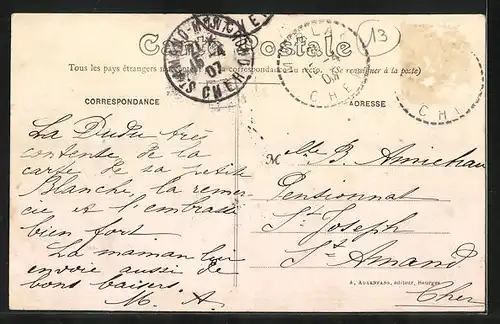 Carte Postale
13
Tous les pays étrangers la correspondance au recto. (Se renseigner à la poste)
CORRESPONDANCE
ADRESSE
CHER
07
La Dudu très
contente de la
carte de sa petite
Blanche, la remer-
cie et l'embrasse
bien fort
La maman lui
envoie aussi de
bons baisers.
M. A.
Melle B. Amichau
Pensionnat
St Joseph
St Amand
Cher
A. AUXENFANS, éditeur, Bourges